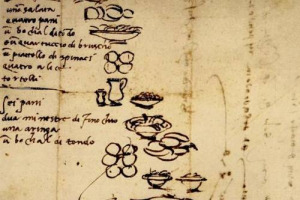 una salata
quatro pani
u bochal di todo
un quartuccio di bruscho
u piatello de spinaci
quatro alice
tortelli
sei pani
dua minestre di finochio
una aringa
u bochal di tondo